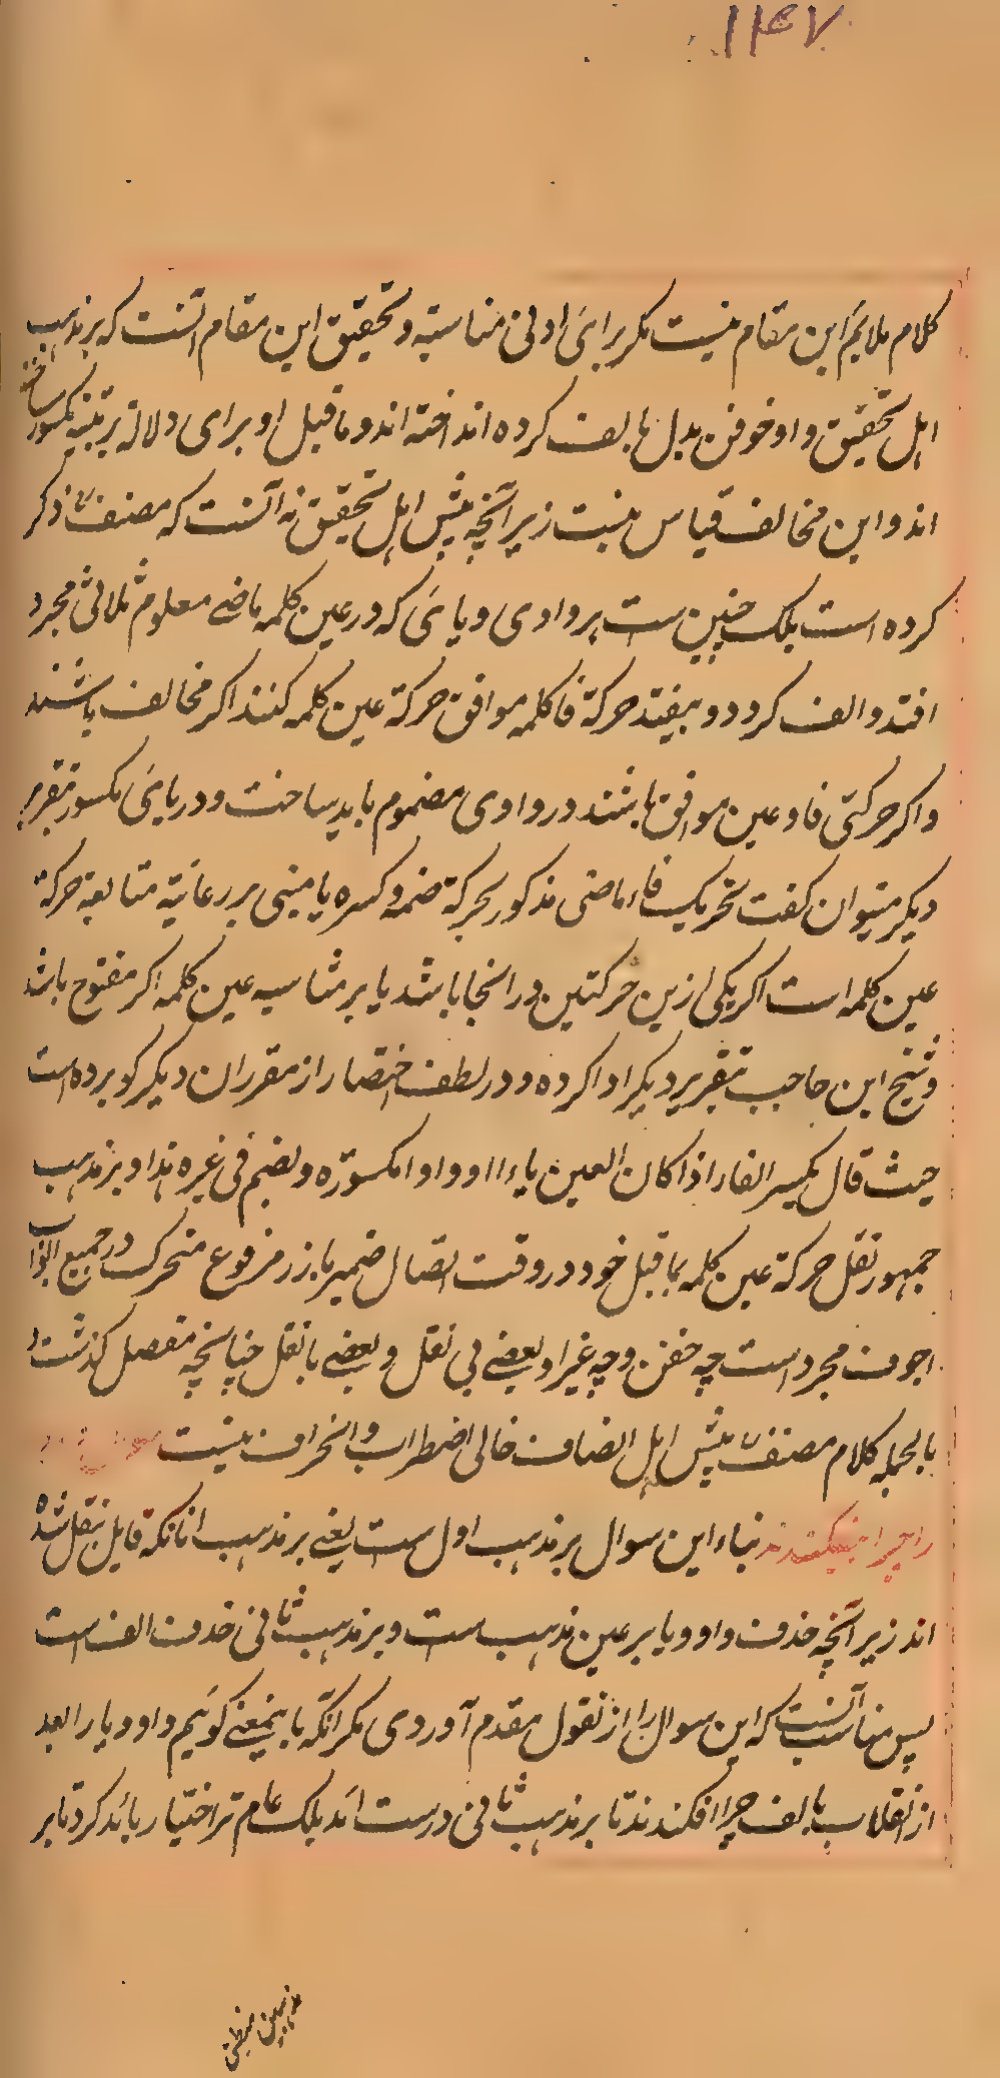 ۱۴۷
کلام ملایم این مقام نیست مکر برای ادنی مناسبة و تحقیق این مقام آنست که بر مذهب
اهل تحقیق واو خوفن بدل بالف کرده انداخته اند و ماقبل او برای دلالة بر بنیه مکسور ساخته
اند و این مخالف قیاس نیست زیرا آنچه پیش اهل تحقیق نه آنست که مصنف ذکر
کرده است بلکه چنین ست هر واوی و یایی که در عین کلمه ماضی معلوم ثلاثی مجرد
افتد و الف کردد و بیفتد حرکة فا کلمه موافق حرکة عین کلمه کنند اکر مخالف باشند
و اکر حرکتی فا و عین موافق باشند در واوی مضموم باید ساخت و در یایی مکسور بتقریر
دیکر میتوان کفت تحریک فاء ماضی مذکور بحرکة ضمه و کسره یا مبنی بر رعایة متابعة حرکة
عین کلمه است اکر یکی ازین حرکتین در انجا باشد یا بر مناسبه عین کلمه اکر مفتوح باشد
و شیخ ابن حاجب بتقریر دیکر ادا کرده و در لطف اختصار از مقرران دیکر کو برده است
حیث قال یکسر الفاء اذا کان العین یاء او واوا مکسورة و یضم فی غیره هذا و بر مذهب
جمهور نقل حرکة عین کلمه بماقبل خود در وقت اتصال ضمیر بارز مرفوع متحرک در جمیع ابواب
اجوف مجرد است چه خفن و چه غیر او بعضے بی نقل و بعضے با نقل چنانچه مفصل کذشت
بالجمله کلام مصنف پیش اهل انصاف خالی اضطراب و انحراف نیست
را چرا بیفکندند بناء این سوال بر مذهب اول ست یعنے بر مذهب انانکه قایل بنقل شده
اند زیرا آنچه حذف واو و یا بر عین مذهب ست و بر مذهب ثانی حذف الف است
پس مناسب آنست که این سوال را از نقول مقدم آوردی مکر انکه باینمعنے کوییم واو و یا را بعد
از انقلاب بالف چرا افکندند تا بر مذهب ثانی درست آید بلکه عام تر اختیار باید کرد تا بر